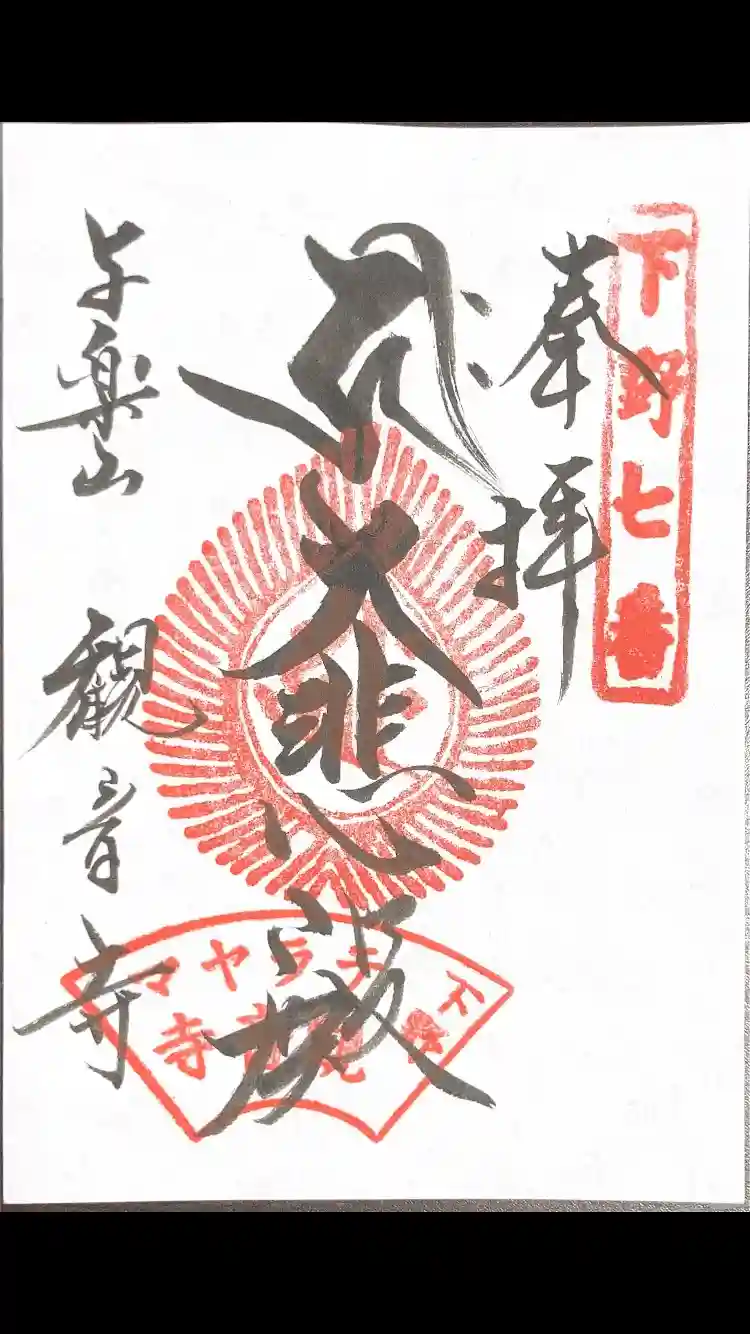 下野七番
奉拝
大悲殿
下野
テラヤマ
観音寺
与楽山 観音寺